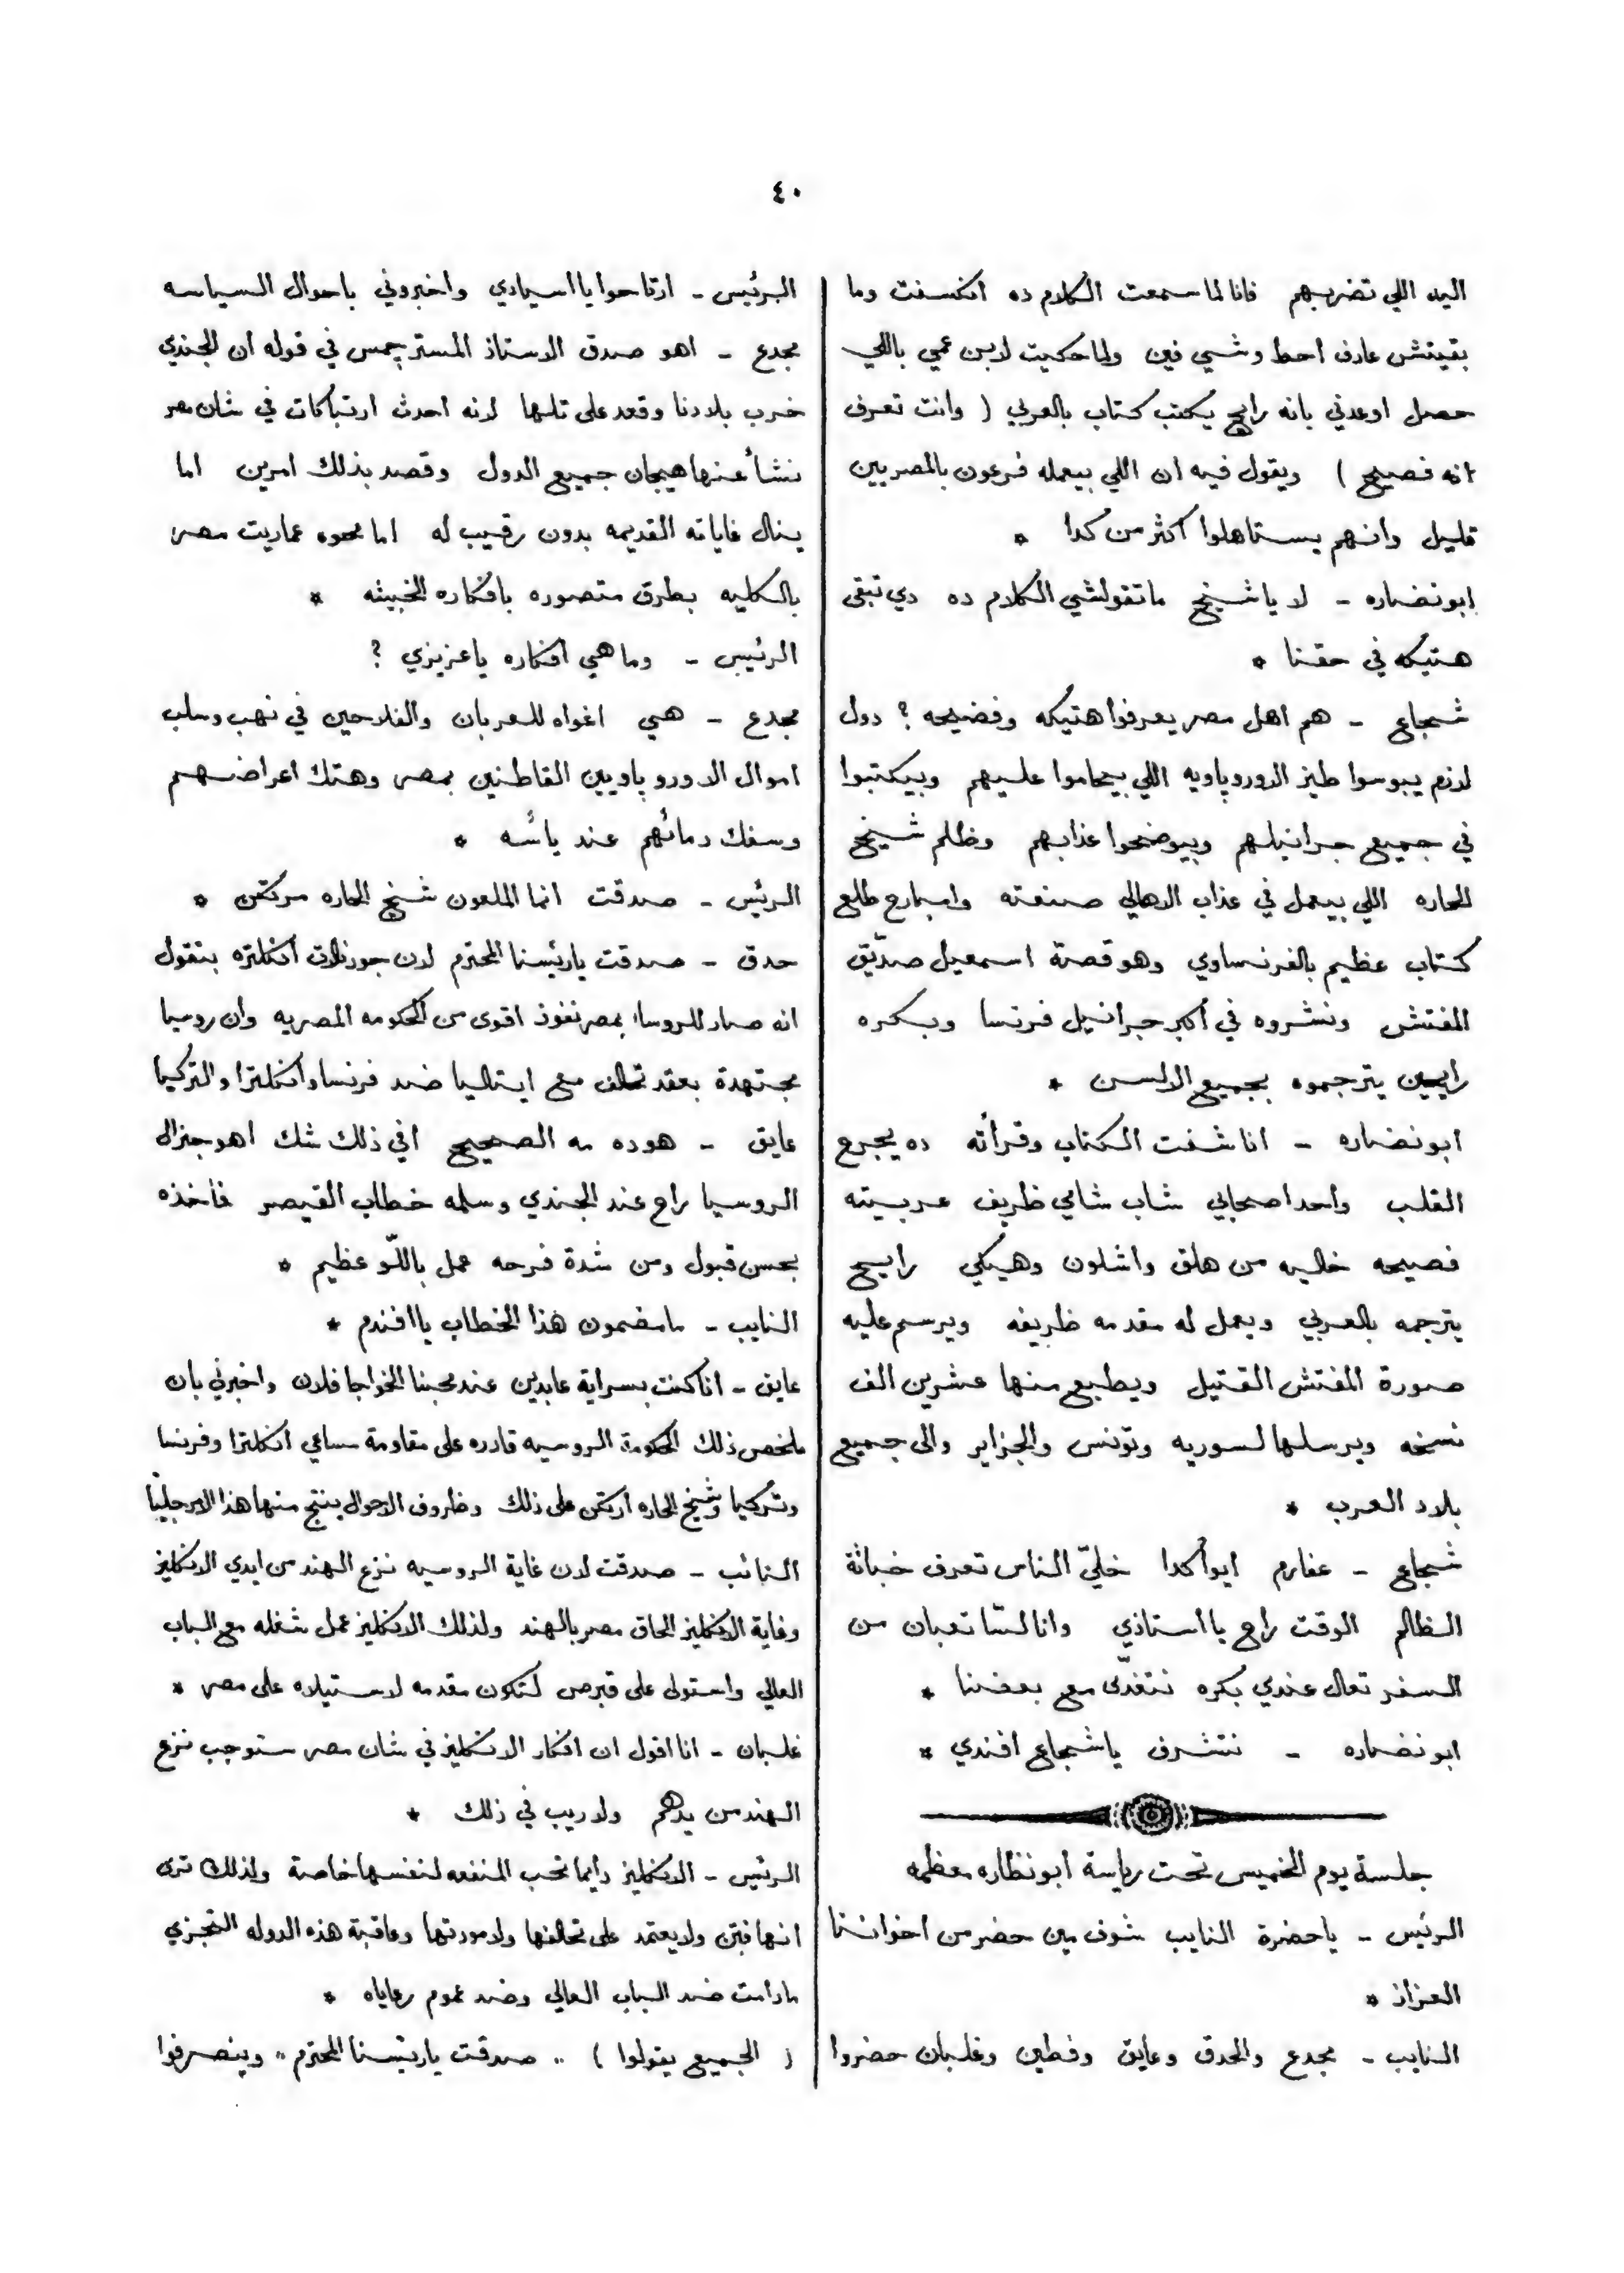 ٤٠
اليد اللي تضربهم فانا لما سمعت الكلام ده انكسفت وما
بقيتش عارف احط وشي فين ولما حكيت لابن عمي باللي
حصل اوعدني بانه رايح يكتب كتاب بالعربي ( وانت تعرف
انه فصيح ) ويقول فيه ان اللي بيعمله فرعون بالمصريين
قليل وانهم يستاهلوا اكثر من كدا *
ابو نضاره - لا يا شيخ ما تقولشي الكلام ده دي تبقى
هتيكه في حقنا *
شجاع - هم اهل مصر يعرفوا هتيكه وفضيحه ؟ دول
لازم يبوسوا طيز الاوروپاويه اللي بيحاموا عليهم وبيكتبوا
في جميع جرانيلهم وبيوضحوا عذابهم وظلم شيخ
الحاره اللي بيعمل في عذاب الاهالي صنعته وامبارح طلع
كتاب عظيم بالفرنساوي وهو قصة اسمعيل صدّيق
المفتش ونشروه في اكبر جرانيل فرنسا وبكره
رايحين يترجموه بجميع الالسن *
ابو نضاره - انا شفت الكتاب وقرأته ده يجرح
القلب واحد اصحابي شاب شامي ظريف عربيته
فصيحه خاليه من هلق واشلون وهيكي رايح
يترجمه بالعربي ويعمل له مقدمه ظريفه ويرسم عليه
صورة المفتش القتيل ويطبع منها عشرين الف
نسخه ويرسلها لسوريه وتونس والجزاير والى جميع
بلاد العرب *
شجاع - عفارم ايوا كدا خليّ الناس تعرف خباثة
الظالم الوقت راح يا استاذي وانا لسّا تعبان من
السفر تعال عندي بكره نتغدّى مع بعضنا *
ابو نضاره - نتشرف يا شجاع افندي *
جلسة يوم الخميس تحت رياسة ابو نظاره معظمه
الرئيس - يا حضرة النايب شوف مين حضر من اخواننا
العزاز *
النايب - مجدع والحدق وعايق وفطين وغلبان حضروا
الرئيس - ارتاحوا يا اسيادي واخبروني باحوال السياسه
مجدع - اهو صدق الاستاذ المستر جمس في قوله ان الجندي
خرب بلادنا وقعد على تلها لانه احدث ارتباكات في شان مصر
نشأ عنها هيجان جميع الدول وقصد بذلك امرين اما
ينال غاياته القديمه بدون رقيب له اما محوه عماريت مصر
بالكليه بطرق متصوره بافكاره الخبيثه *
الرئيس - وما هي افكاره يا عزيزي ؟
مجدع - هي اغواه للعربان والفلاحين في نهب وسلب
اموال الاوروپاويين القاطنين بمصر وهتك اعراضهم
وسفك دمائهم عند يائسه *
الرئيس - صدقت انما الملعون شيخ الحاره مركن *
حدق - صدقت يا رئيسنا المحترم لان جورنالات انكلتره بتقول
انه صار للروسا بمصر نفوذ اقوى من الحكومه المصريه وان روسيا
مجتهدة بعقد تحالف مع ايتاليا ضد فرنسا وانكلترا والتركيا
عايق - هو ده مه الصحيح افي ذلك شك اهو جنرال
الروسيا راح عند الجندي وسلمه خطاب القيصر فاخذه
بحسن قبول ومن شدة فرحه عمل باللّو عظيم *
النايب - ما مضمون هذا الخطاب يا افندم *
عايق - انا كنت بسراية عابدين عند محبنا الخواجا فلان واخبرني بان
ملخص ذلك الحكومة الروسيه قادره على مقاومة مساعي انكلترا وفرنسا
وتركيا وشيخ الحاره اركن على ذلك وظروف الاحوال ينتج منها هذا الامر جلياً
النائب - صدقت لان غاية الروسيه نزع الهند من ايدي الانكليز
وغاية الانكليز الحاق مصر بالهند ولذلك الانكليز عمل شغله مع الباب
العالي واستولى على قبرص لتكون مقدمه لاستيلاه على مصر *
غلبان - انا اقول ان افكار الانكليز في شان مصر ستوجب نزع
الهند من يدهم ولا ريب في ذلك *
الرئيس - الانكليز دايما تحب المنفعه لنفسها خاصة ولذلك ترى
انها فتن ولا يعتمد على تحالفها ولا مودتها وعاقبة هذه الدوله التجزي
ما دامت ضد الباب العالي وضد عموم رعاياه *
( الجميع يقولوا ) ،، صدقت يا رئيسنا المحترم ،، وينصرفوا